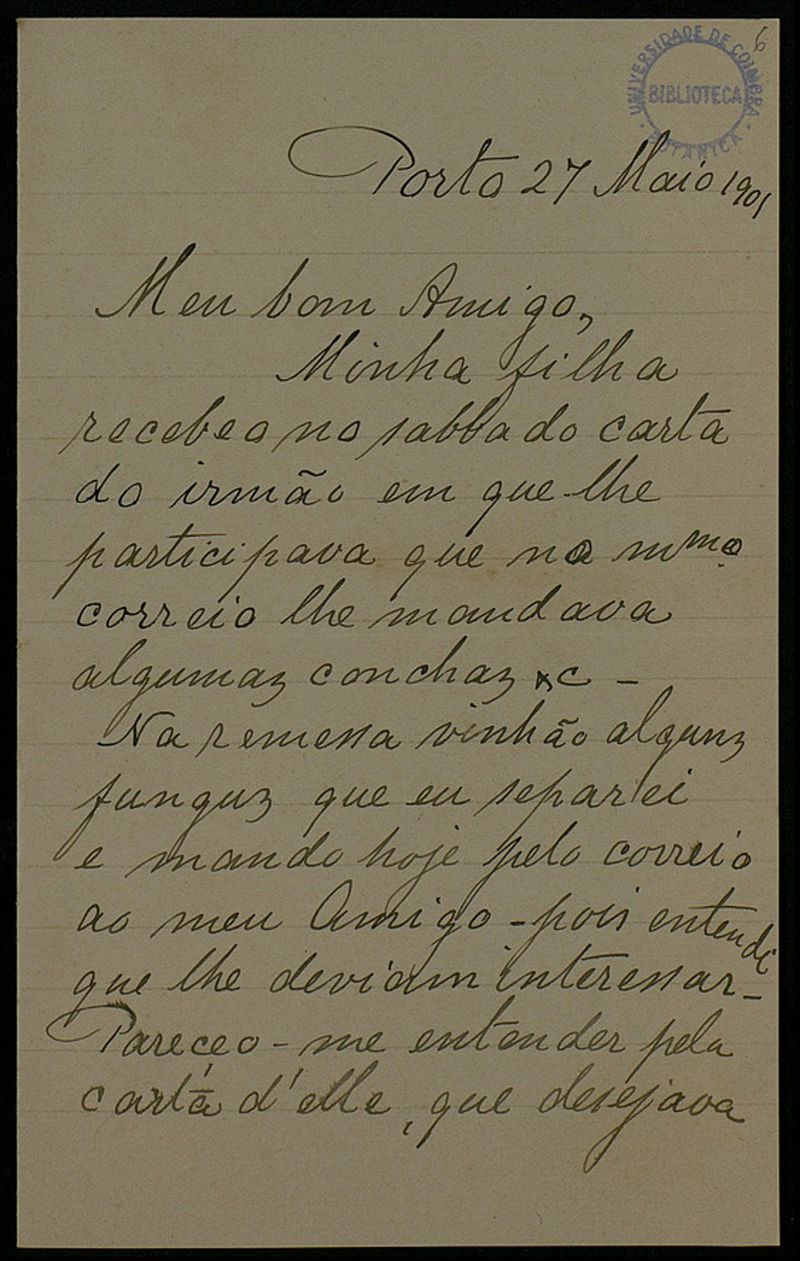 6
UNIVERSIDADE DE COIMBRA
BIBLIOTECA
BOTANICA
Porto 27 Maio 1901
Meu bom Amigo,
Minha filha
recebeo no sabbado carta
do irmão em que lhe
participava que no mmo
correio lhe mandava
algumaz conchaz &c -
Na remessa vinhão algunz
funguz que eu separei
e mando hoje pelo correio
ao meu Amigo - pois entendi
que lhe deviam interessar -
Pareceo-me entender pela
carta d'elle, que desejava